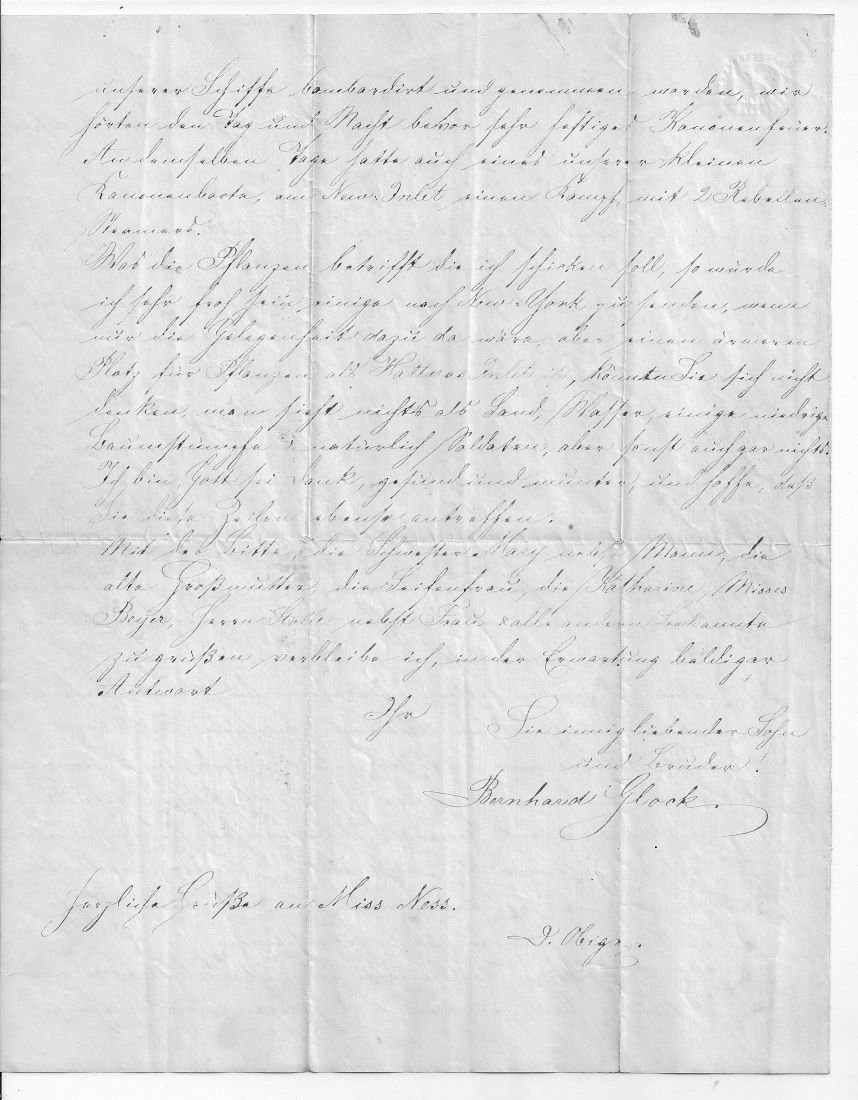 unserer Schiffe bombardirt und genommen worden, wir
hörten den Tag und Nacht bevor sehr heftiges Kanonenfeuer.
An demselben Tage hatte auch eines unserer kleinen
Kanonenboote, am New-Inlet einen Kampf mit 2 Rebellen-
Steamers.
Was die Pflanzen betrifft die ich schicken soll, so würde
ich sehr froh sein einige nach New-York zu senden, wenn
nur die Gelegenheit dazu da wäre, aber einen ärmeren
Platz für Pflanzen als Hatteras Inlet ist, könnten Sie sich nicht
denken, man sieht nichts als Sand, Wasser, einige niedrige
Baumstümpfe & natürlich Soldaten, aber sonst auch gar nichts.
Ich bin, Gott sei Dank, gesund und munter, und hoffe, daß
Sie diese Zeilen ebenso antreffen.
Mit der Bitte, die Schwester Mary nebst Mann, die
alte Großmutter, die Seifenfrau, die Katharine, Misses
Beyer, Herrn nebst Frau & alle andern Bekannte
zu grüßen verbleibe ich, in der Erwartung baldiger
Antwort
Ihr
Sie innigliebender Sohn
und Bruder!
Bernhard Glock.
Herzliche Grüße an Miss Ness.
D. Obige.